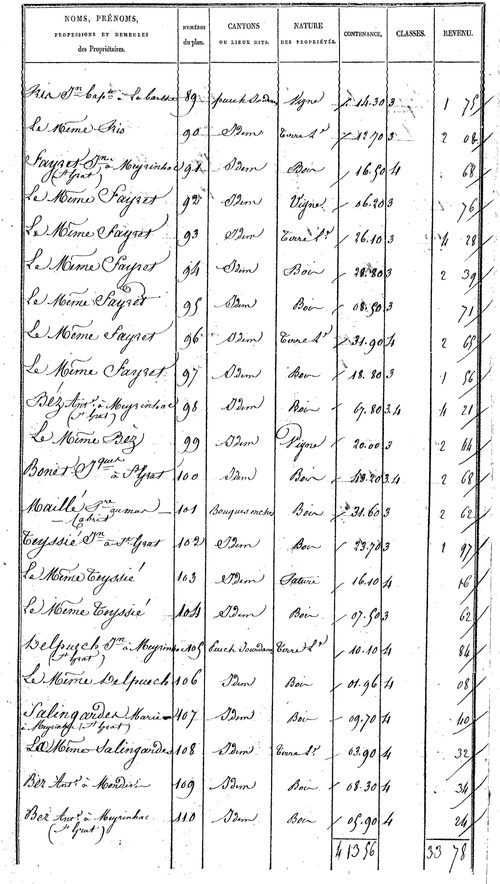 NOMS, PRÉNOMS, PROFESSIONS ET DEMEURES des Propriétaires. NUMÉROS du plan. CANTONS OU LIEUX DITS. NATURE DES PROPRIÉTÉS. CONTENANCE. CLASSES. REVENU.
Rio Jn Bapte à La 89 puech Vigne 14.30 3 1 75
Le Même Rio 90 Idem Terre Lle 12.70 3 2 08
Fayret Jn à Meyrinhac (St Grat) 91 Idem Bois 16.50 4 68
Le Même Fayret 92 Idem Vigne 06.20 3 76
Le Même Fayret 93 Idem Terre Lle 26.10 3 4 28
Le Même Fayret 94 Idem Bois 28.80 3 2 39
Le Même Fayret 95 Idem Bois 08.50 3 71
Le Même Fayret 96 Idem Terre Lle 31.90 4 2 65
Le Même Fayret 97 Idem Bois 18.80 3 1 56
Béz Ante à Meyrinhac (St Grat) 98 Idem Bois 67.80 3.4 4 21
Le Même Bèz 99 Idem Vigne 20.00 3 2 44
Bonet Jques à St Grat 100 Idem Bois 43.20 3.4 2 68
Maillé Pre Cabret 101 Bois 31.60 3 2 62
Teyssié Jn à St Grat 102 Idem Bois 23.70 3 1 97
Le Même Teyssié 103 Idem Pature 16.10 4 16
Le Même Teyssié 104 Idem Bois 07.50 3 62
Delpuech Jn à Meyrinhac (St Grat) 105 Puech Terre Lle 10.10 4 84
Le Même Delpuech 106 Idem Bois 01.96 4 08
Salingardes Marie à Meyrinhac (St Grat) 107 Idem Bois 09.70 4 40
La Même Salingardes 108 Idem Terre Lle 03.90 4 32
Béz Ante à 109 Idem Bois 08.30 4 34
Béz Ante à Meyrinhac (St Grat) 110 Idem Bois 05.90 4 24
4 13 56 33 78